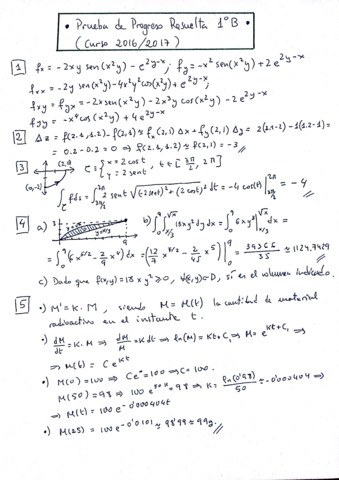 • Prueba de Progreso Resuelta 1ºB •
(Curso 2016/2017)
1 fx = -2xy sen(x²y) - e^(2y-x); fy = -x² sen(x²y) + 2e^(2y-x)
fxx = -2y sen(x²y) - 4x²y² cos(x²y) + e^(2y-x);
fxy = fyx = -2x sen(x²y) - 2x³y cos(x²y) - 2e^(2y-x)
fyy = -x⁴ cos(x²y) + 4e^(2y-x)
2 Δz = f(2.1,1.2) - f(2,1) ≈ fx(2,1) Δx + fy(2,1) Δy = 2(2.1-2) - 1(1.2-1) =
= 0.2 - 0.2 = 0 ⇒ f(2.1,1.2) ≈ f(2,1) = -3
3 (2,0) (0,-2) C ≡ {x = 2 cos t, y = 2 sen t, t ∈ [3π/2, 2π]
∫C f ds = ∫_{3π/2}^{2π} 2 sen t √((-2 sen t)² + (2 cos t)²) dt = -4 cos(t)]_{3π/2}^{2π} = -4
4 a) b) ∫₀⁹ ∫_{x/3}^{√x} 18xy² dy dx = ∫₀⁹ 6xy³]_{x/3}^{√x} dx =
= ∫₀⁹ (6x^(5/2) - 2/9 x⁴) dx = (12/7 x^(7/2) - 2/45 x⁵)]₀⁹ = 39366/35 ≈ 1124.7429
c) Dado que f(x,y) = 18xy² ≥ 0, ∀(x,y) ∈ D, sí es el volumen indicado.
5 •) M' = K·M, siendo M = M(t) la cantidad de material
radioactivo en el instante t.
•) dM/dt = K·M ⇒ dM/M = K dt ⇒ ln(M) = Kt + C₁ ⇒ M = e^(Kt+C₁) ⇒
⇒ M(t) = C e^(Kt)
•) M(0) = 100 ⇒ Ce⁰ = 100 ⇒ C = 100.
M(50) = 98 ⇒ 100 e^(50K) = 98 ⇒ K = ln(0'98)/50 ≈ -0'000404 ⇒
⇒ M(t) = 100 e^(-0'000404t)
•) M(25) = 100 e^(-0'0101) ≈ 98'99 ≈ 99g.